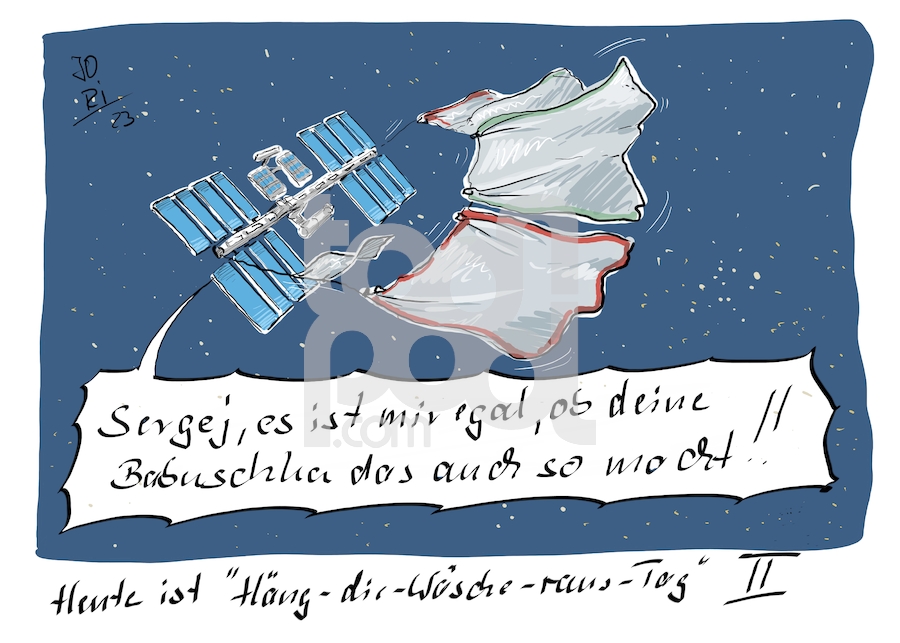 JO
RI
23
Sergej, es ist mir egal, ob deine
Babuschka das auch so macht!!
Heute ist "Häng-die-Wäsche-raus-Tag" II
toonpool
.com